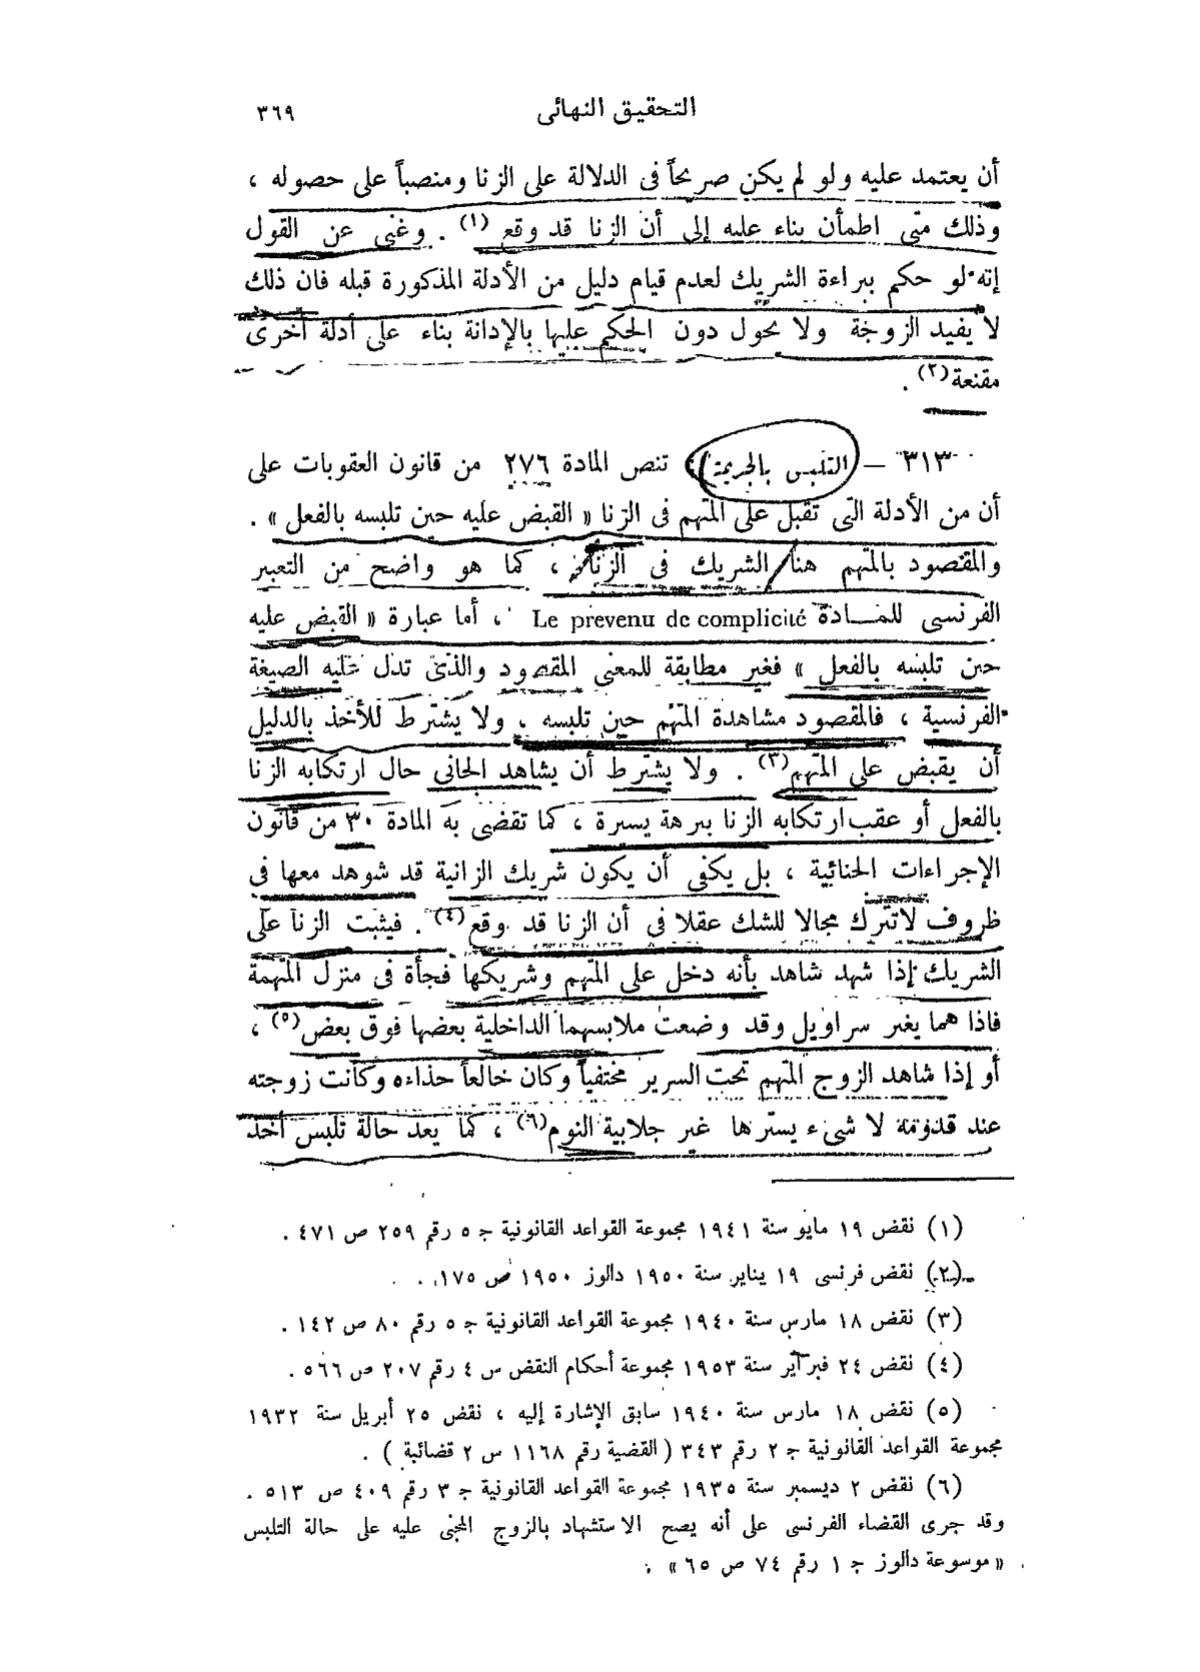 التحقيق النهائى ٣٦٩
أن يعتمد عليه ولو لم يكن صريحاً فى الدلالة على الزنا ومنصباً على حصوله ،
وذلك متى اطمأن بناء عليه إلى أن الزنا قد وقع (١) . وغنى عن القول
إنه لو حكم ببراءة الشريك لعدم قيام دليل من الأدلة المذكورة قبله فان ذلك
لا يفيد الزوجة ولا يحول دون الحكم عليها بالإدانة بناء على أدلة أخرى
مقنعة (٢) .
٣١٣ — التلبس بالجريمة : تنص المادة ٢٧٦ من قانون العقوبات على
أن من الأدلة التى تقبل على المتهم فى الزنا « القبض عليه حين تلبسه بالفعل » .
والمقصود بالمتهم هنا الشريك فى الزنا ، كما هو واضح من التعبير
الفرنسى للمادة Le prévenu de complicité ، أما عبارة « القبض عليه
حين تلبسه بالفعل » فغير مطابقة للمعنى المقصود والذى تدل عليه الصيغة
الفرنسية ، فالمقصود مشاهدة المتهم حين تلبسه ، ولا يشترط للأخذ بالدليل
أن يقبض على المتهم (٣) . ولا يشترط أن يشاهد الجانى حال ارتكابه الزنا
بالفعل أو عقب ارتكابه الزنا ببرهة يسيرة ، كما تقضى به المادة ٣٠ من قانون
الإجراءات الجنائية ، بل يكفى أن يكون شريك الزانية قد شوهد معها فى
ظروف لاتترك مجالا للشك عقلا فى أن الزنا قد وقع (٤) . فيثبت الزنا على
الشريك إذا شهد شاهد بأنه دخل على المتهم وشريكها فجأة فى منزل المتهمة
فاذا هما بغير سراويل وقد وضعت ملابسهما الداخلية بعضها فوق بعض (٥) ،
أو إذا شاهد الزوج المتهم تحت السرير مختفياً وكان خالعاً حذاءه وكانت زوجته
عند قدومه لا شىء يسترها غير جلابية النوم (٦) ، كما يعد حالة تلبس أخذ
(١) نقض ١٩ مايو سنة ١٩٤١ مجموعة القواعد القانونية ج ٥ رقم ٢٥٩ ص ٤٧١ .
(٢) نقض فرنسى ١٩ يناير سنة ١٩٥٠ دالوز ١٩٥٠ ص ١٧٥ .
(٣) نقض ١٨ مارس سنة ١٩٤٠ مجموعة القواعد القانونية ج ٥ رقم ٨٠ ص ١٤٢ .
(٤) نقض ٢٤ فبراير سنة ١٩٥٣ مجموعة أحكام النقض س ٤ رقم ٢٠٧ ص ٥٦٦ .
(٥) نقض ١٨ مارس سنة ١٩٤٠ سابق الإشارة إليه ، نقض ٢٥ أبريل سنة ١٩٣٢
مجموعة القواعد القانونية ج ٢ رقم ٣٤٣ ( القضية رقم ١١٦٨ س ٢ قضائية ) .
(٦) نقض ٢ ديسمبر سنة ١٩٣٥ مجموعة القواعد القانونية ج ٣ رقم ٤٠٩ ص ٥١٣ .
وقد جرى القضاء الفرنسى على أنه يصح الاستشهاد بالزوج المجنى عليه على حالة التلبس
« موسوعة دالوز ج ١ رقم ٧٤ ص ٦٥ » .